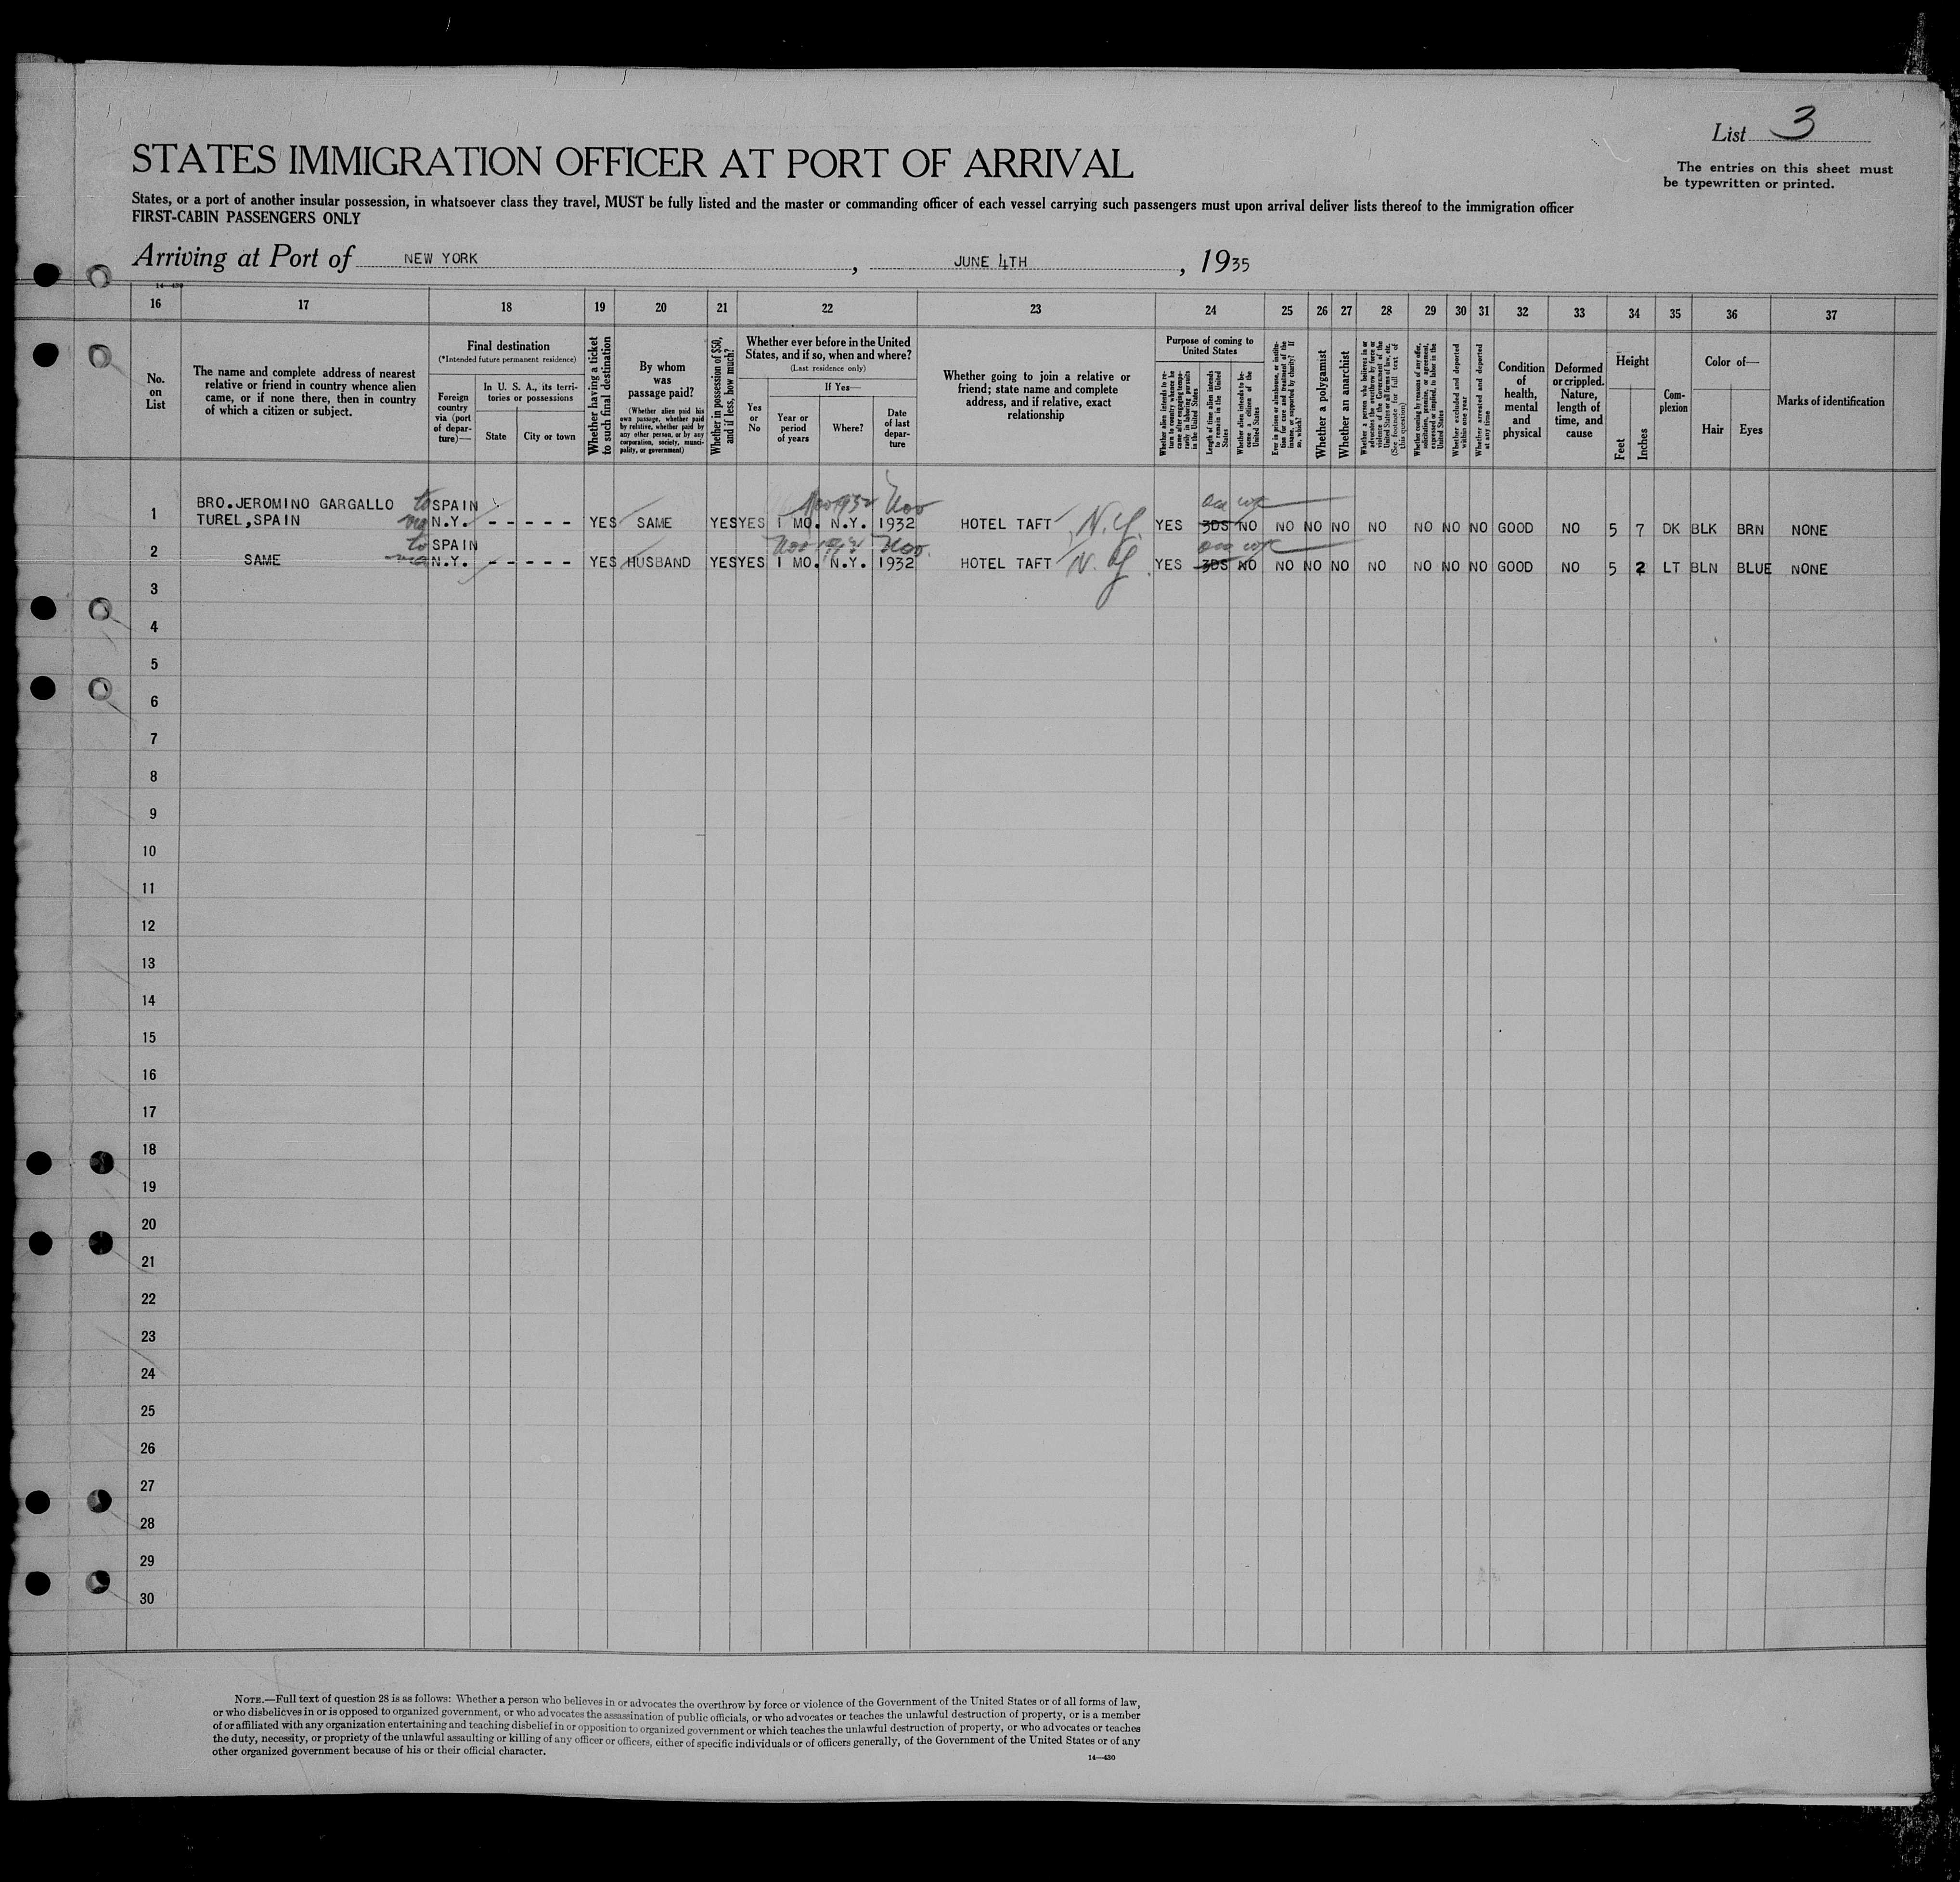 List 3
The entries on this sheet must
be typewritten or printed.
STATES IMMIGRATION OFFICER AT PORT OF ARRIVAL
States, or a port of another insular possession, in whatsoever class they travel, MUST be fully listed and the master or commanding officer of each vessel carrying such passengers must upon arrival deliver lists thereof to the immigration officer
FIRST-CABIN PASSENGERS ONLY
Arriving at Port of NEW YORK, JUNE 4TH, 1935
14—430
16 17 18 19 20 21 22 23 24 25 26 27 28 29 30 31 32 33 34 35 36 37
No.
on
List
The name and complete address of nearest
relative or friend in country whence alien
came, or if none there, then in country
of which a citizen or subject.
Final destination
(*Intended future permanent residence)
Foreign
country
via (port
of depar-
ture)—
In U. S. A., its terri-
tories or possessions
State
City or town
Whether having a ticket
to such final destination
By whom
was
passage paid?
(Whether alien paid his
own passage, whether paid
by relative, whether paid by
any other person, or by any
corporation, society, munici-
pality, or government)
Whether in possession of $50,
and if less, how much?
Whether ever before in the United
States, and if so, when and where?
(Last residence only)
Yes
or
No
If Yes—
Year or
period
of years
Where?
Date
of last
depar-
ture
Whether going to join a relative or
friend; state name and complete
address, and if relative, exact
relationship
Purpose of coming to
United States
Whether alien intends to re-
turn to country whence he
came after engaging tempo-
rarily in laboring pursuits
in the United States
Length of time alien intends
to remain in the United
States
Whether alien intends to be-
come a citizen of the
United States
Ever in prison or almshouse, or institu-
tion for care and treatment of the
insane, or supported by charity? If
so, which?
Whether a polygamist
Whether an anarchist
Whether a person who believes in or
advocates the overthrow by force or
violence of the Government of the
United States or all forms of law, etc.
(See footnote for full text of
this question)
Whether coming by reason of any offer,
solicitation, promise, or agreement,
expressed or implied, to labor in the
United States
Whether excluded and deported
within one year
Whether arrested and deported
at any time
Condition
of
health,
mental
and
physical
Deformed
or crippled.
Nature,
length of
time, and
cause
Height
Feet
Inches
Com-
plexion
Color of—
Hair
Eyes
Marks of identification
BRO.JEROMINO GARGALLO to SPAIN Nov 1932 Nov
1 TUREL,SPAIN via N.Y. - - - - - YES SAME YES YES 1 MO. N.Y. 1932 HOTEL TAFT, N.Y. YES 3DS NO NO NO NO NO NO NO NO GOOD NO 5 7 DK BLK BRN NONE
to SPAIN Nov 1932 Nov
2 SAME via N.Y. - - - - - YES HUSBAND YES YES 1 MO. N.Y. 1932 HOTEL TAFT N.Y. YES 3DS NO NO NO NO NO NO NO NO GOOD NO 5 2 LT BLN BLUE NONE
3
4
5
6
7
8
9
10
11
12
13
14
15
16
17
18
19
20
21
22
23
24
25
26
27
28
29
30
NOTE.—Full text of question 28 is as follows: Whether a person who believes in or advocates the overthrow by force or violence of the Government of the United States or of all forms of law,
or who disbelieves in or is opposed to organized government, or who advocates the assassination of public officials, or who advocates or teaches the unlawful destruction of property, or is a member
of or affiliated with any organization entertaining and teaching disbelief in or opposition to organized government or which teaches the unlawful destruction of property, or who advocates or teaches
the duty, necessity, or propriety of the unlawful assaulting or killing of any officer or officers, either of specific individuals or of officers generally, of the Government of the United States or of any
other organized government because of his or their official character.
14—430